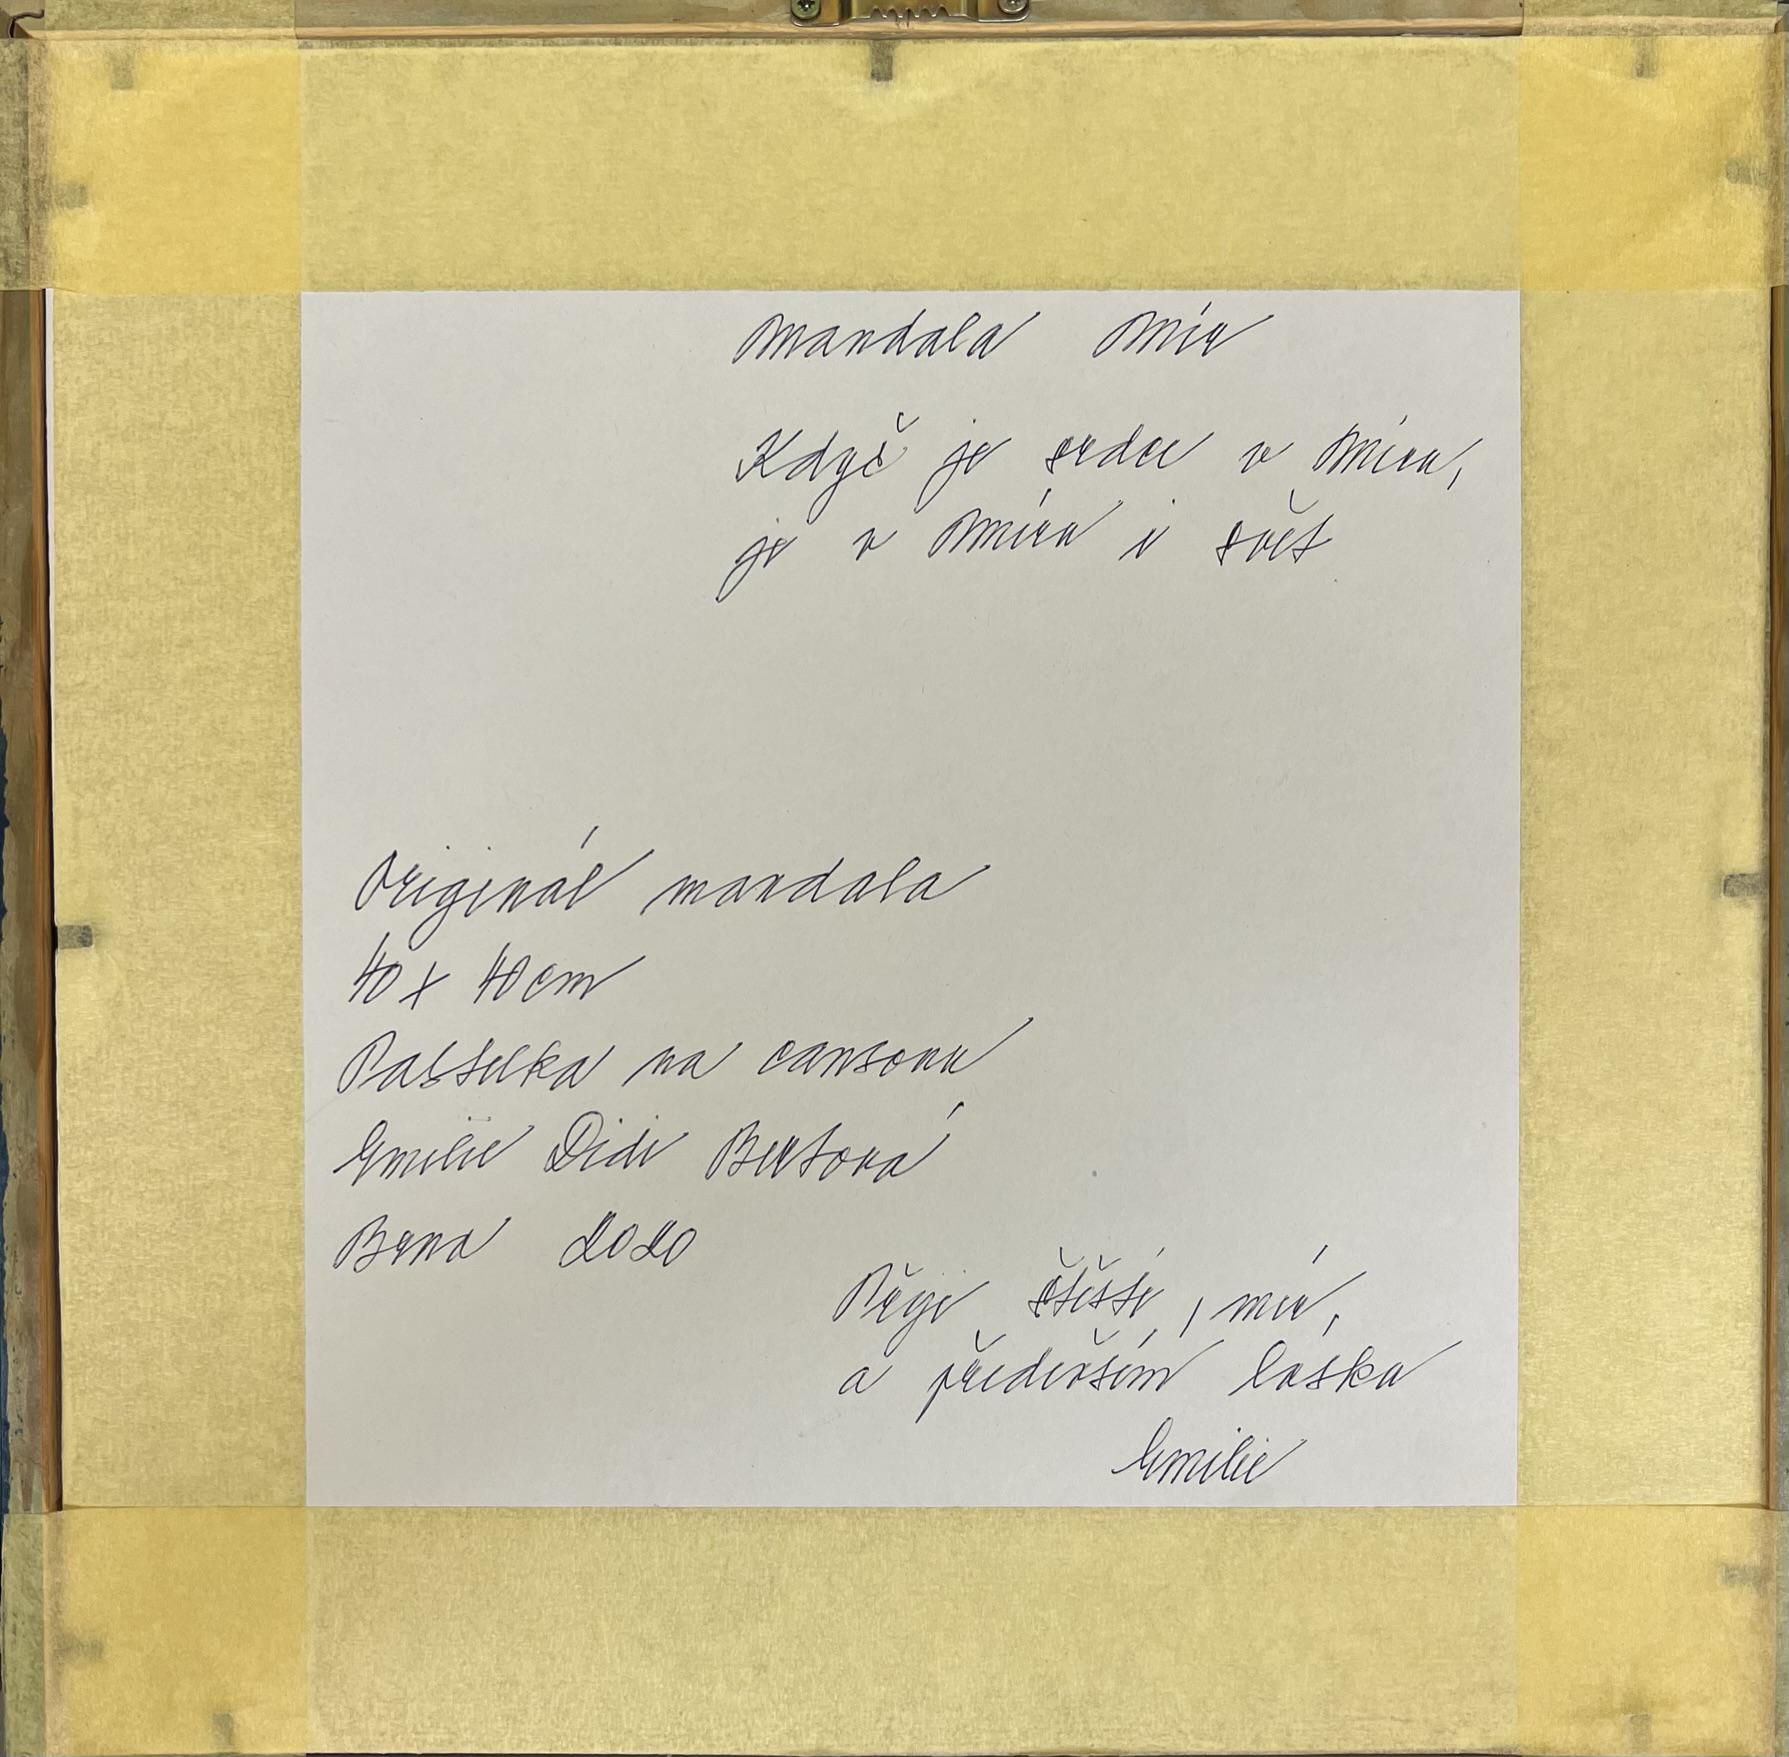 Mandala Mír
Když je srdce v Míru,
je v Míru i svět
Originál mandala
40 x 40 cm
Pastelka na cansonu
Emilie Didi Bertová
Brno 2020
Přeji štěstí, mír,
a především lásku
Emilie